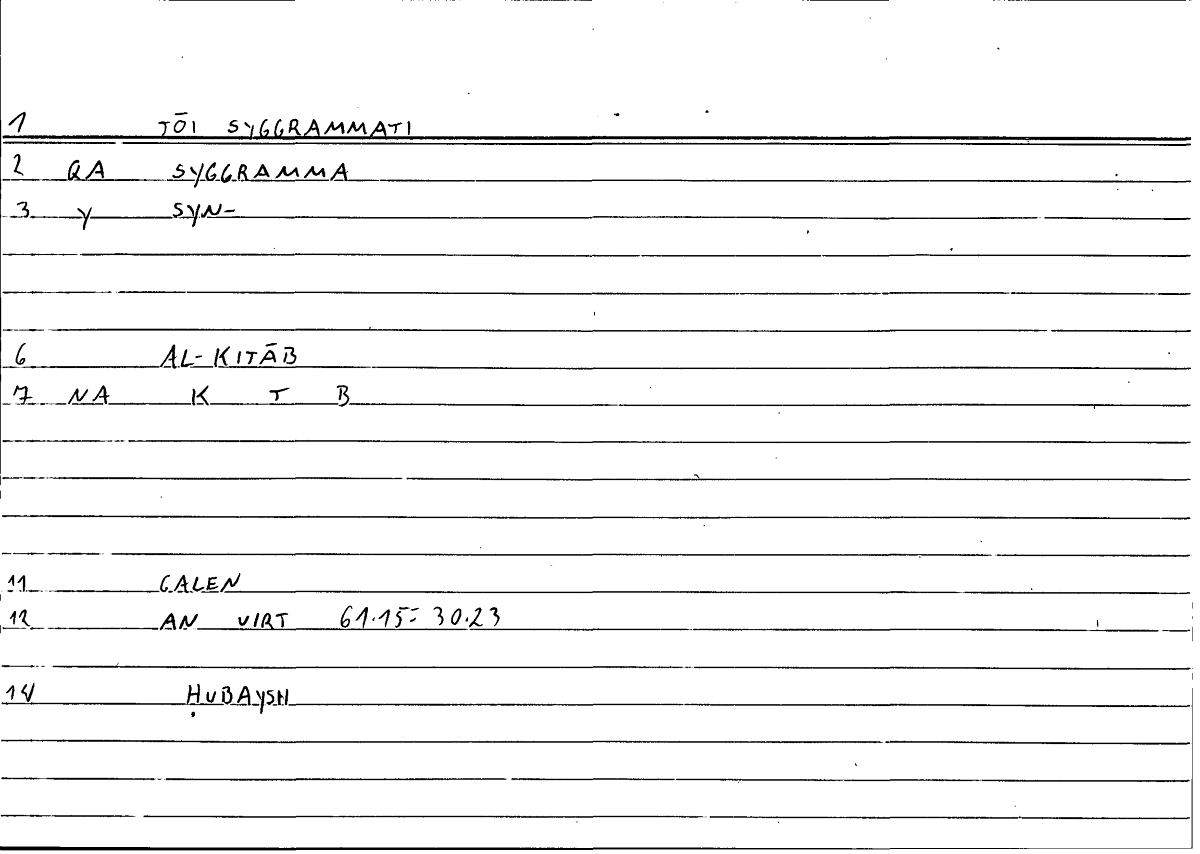 1 TŌI SYGGRAMMATI
2 QA SYGGRAMMA
3 Y SYN-
6 AL-KITĀB
7 NA K T B
11 GALEN
12 AN VIRT 61.15= 30.23
14 ḤUBAYSH